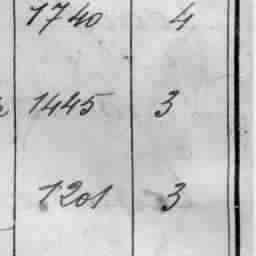 1740 4
1445 3
1201 3